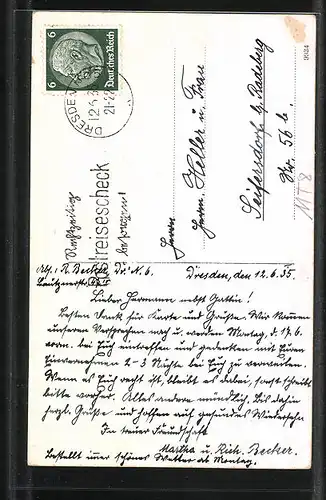 6 Deutsches Reich 6
DRESDEN
12.6.35
21-22
Rechtzeitig
Reisescheck
besorgen!
Herrn
Herm. Heller u. Frau
Seifersdorf b. Radeberg
Nr. 56 b.
9624
Abs.: R. Becker, Dr. N. 6.
Dresden, den 12.6.35.
Lieber Hermann nebst Gattin!
Besten Dank für Karte und Grüße. Wir kommen
unserem Versprechen nach u. werden Montag, d. 17.6.
vorm. bei Euch eintreffen und gedenken mit Eurem
Einvernehmen 2-3 Nächte bei Euch zu verweilen.
Wenn es Euch recht ist, bleibt es dabei, sonst schreibt
bitte vorher. Alles andere mündlich. Bis dahin
herzl. Grüße und hoffen auf gesundes Wiedersehn
In treuer Freundschaft
Martha u. Rich. Becker.
Bestellt nur schönes Wetter ab Montag.